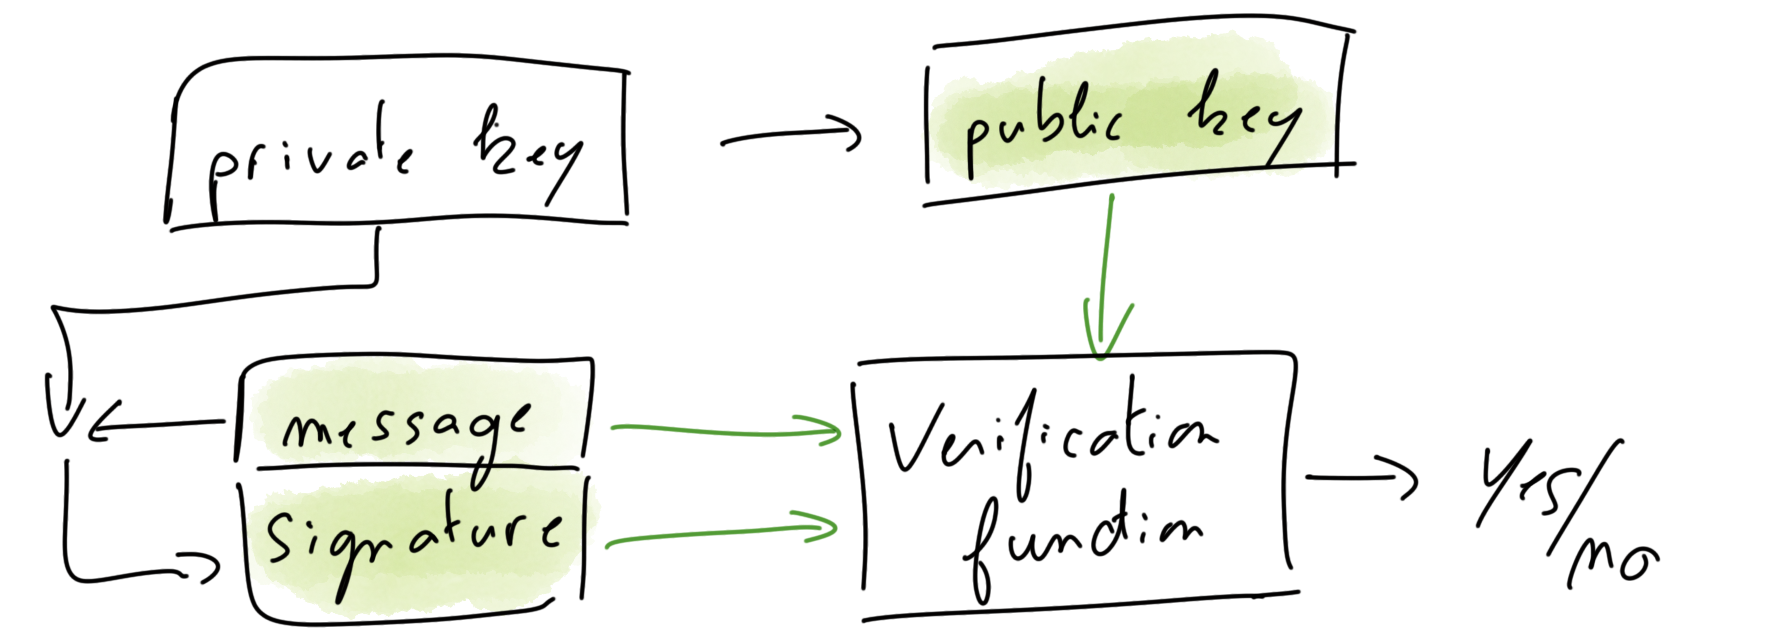 private key
public key
message
signature
Verification
function
Yes/
no